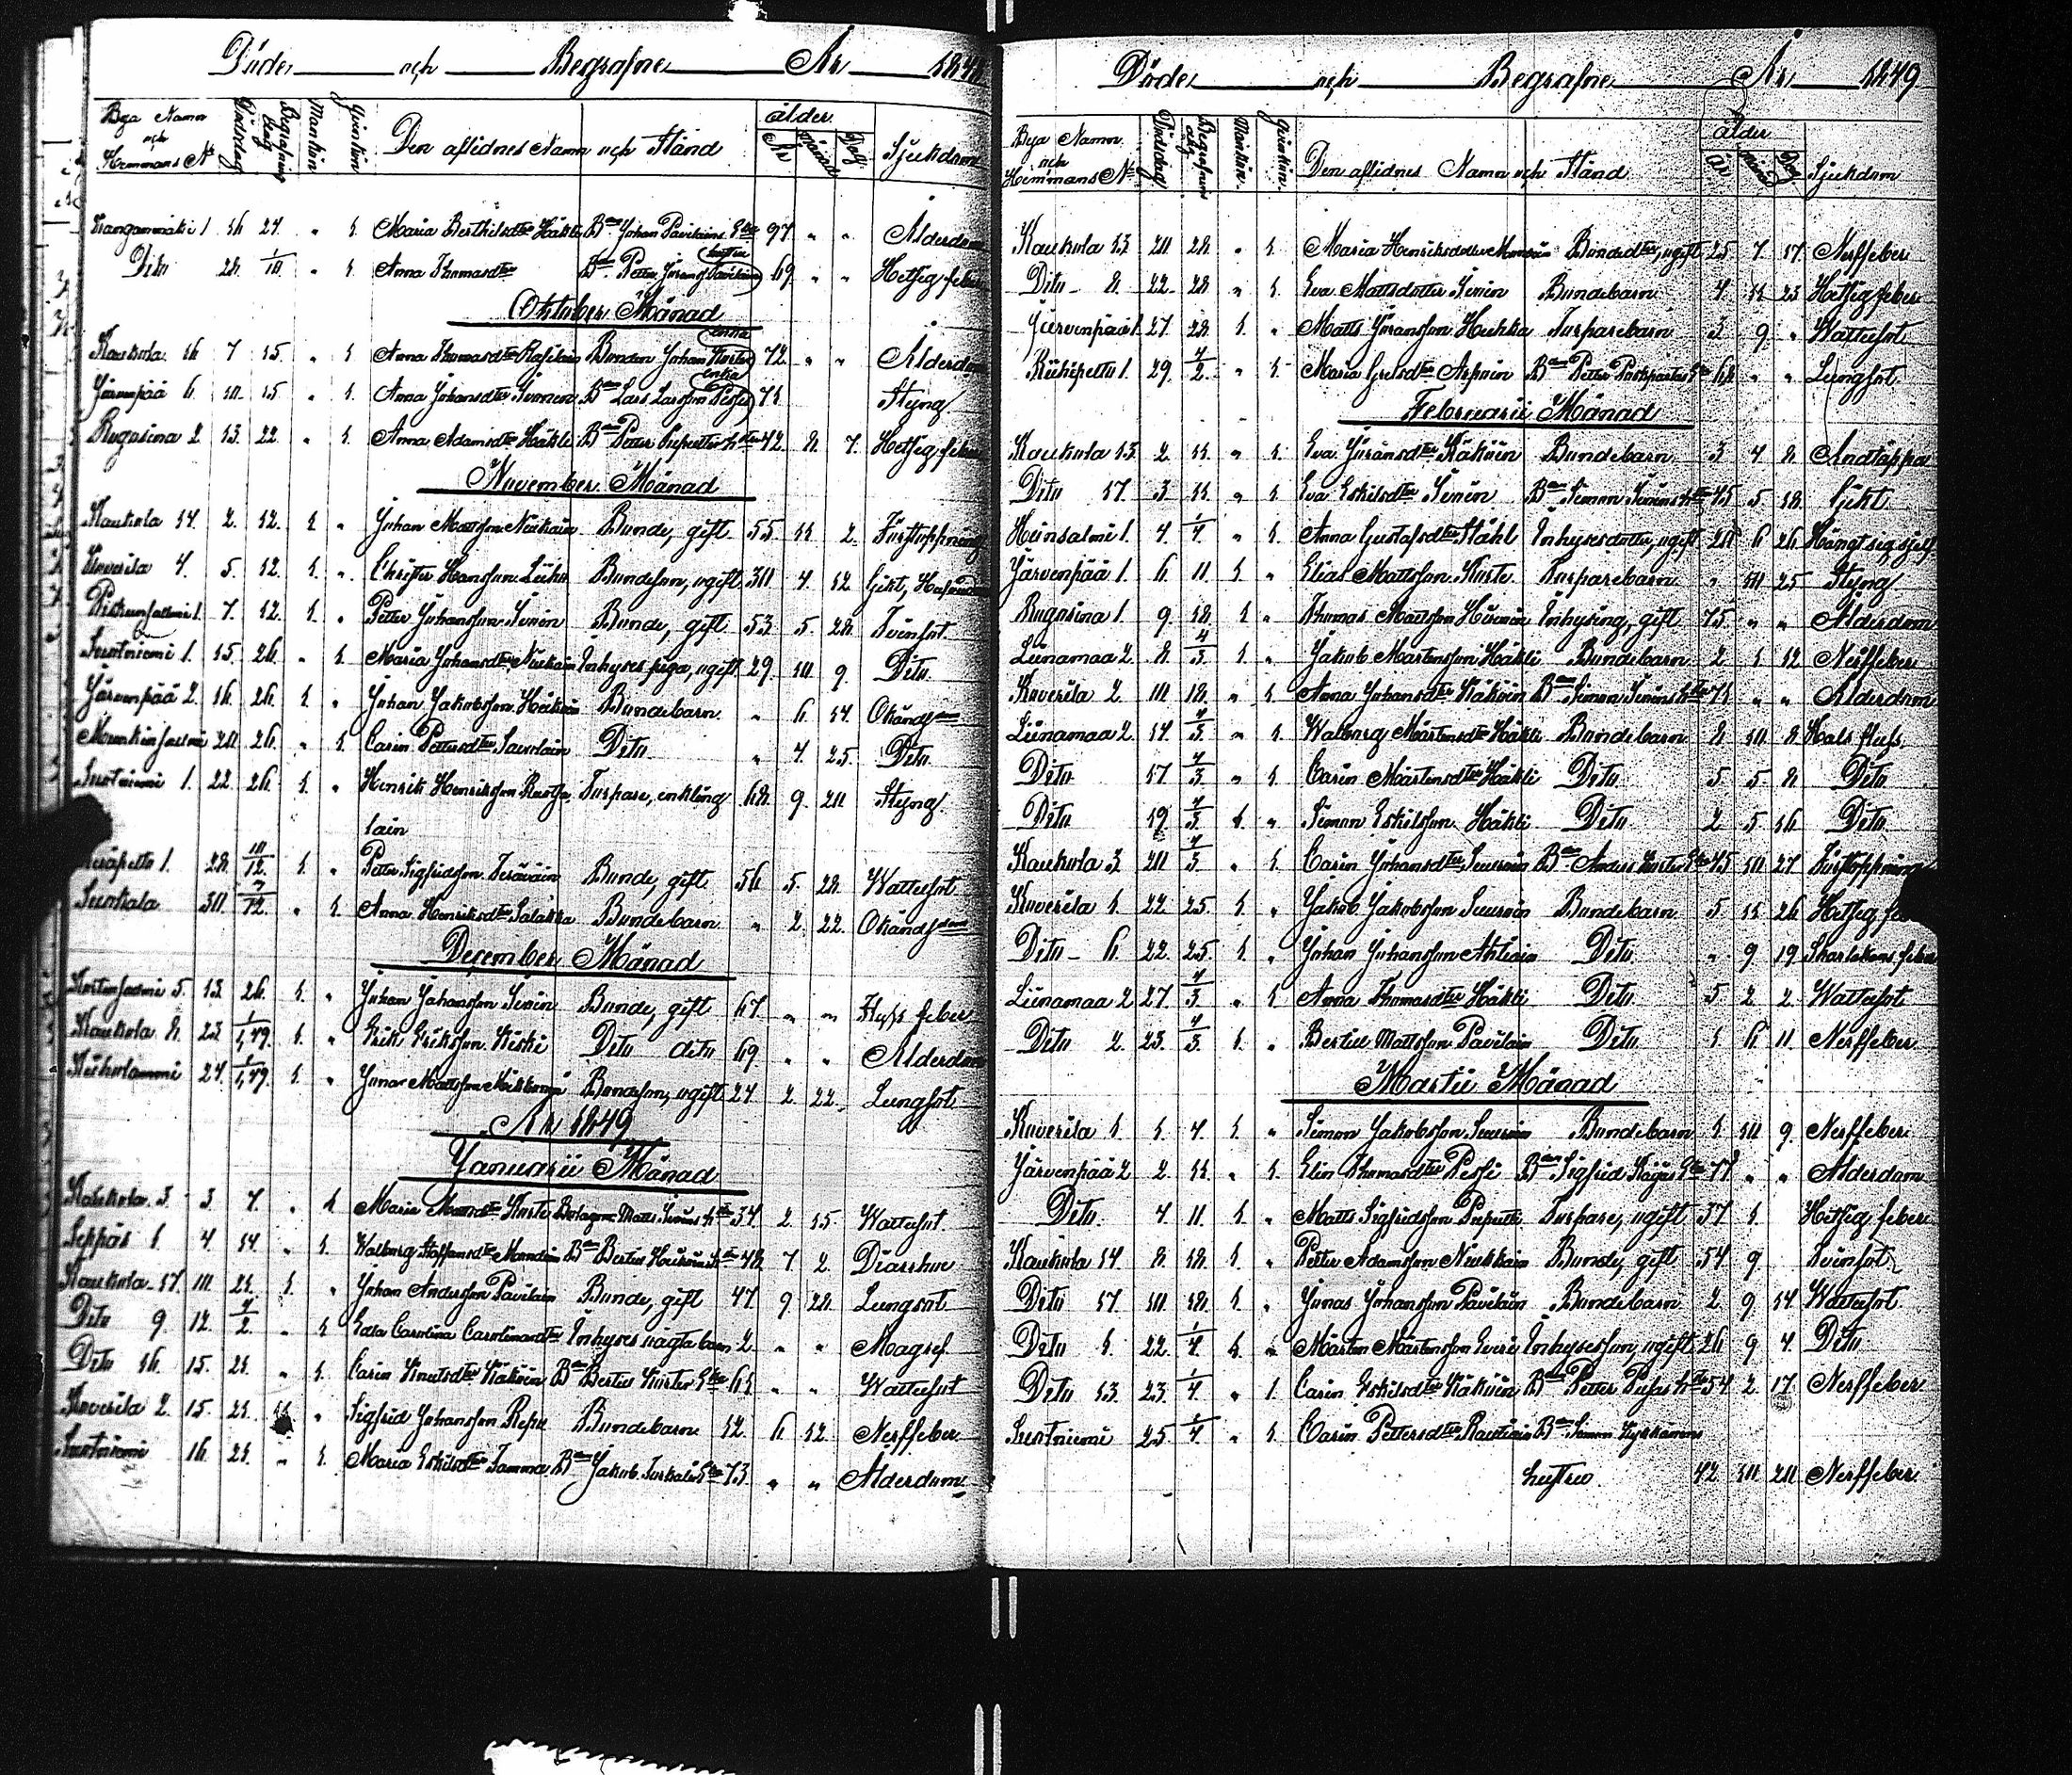 Döde och Begrafne År 1848
Bya Namn och Hemmans No Dödsdag Begrafnings dag Mankön Qvinkön Den aflidnes Namn och Stånd ålder År Månad Dag Sjukdom
Kangasmäki 1 16 24 " 1 Maria Bertilsdter Häkli Bden Johan Pavilains Eka 97 " " Ålderdom
Dito 28 1/10 " 1 Anna Thomasdter Bden Petter Pavilains hustru 69 " " Hetsig feber
Oktober Månad
Kaukola 16 7 15 " 1 Anna Thomasdter Bonden Johan Kurtes enka 72 " " Ålderdom
Järvenpää 6 10 15 " 1 Anna Johansdter Bden Lars Larsson enka 71 Styng
Rugosina 2 13 22 " 1 Anna Adamsdter Häkli Bden Petter hstru 42 8 7 Hetsig feber
November Månad
Kaukola 14 2 12 1 " Johan Mattsson Bonde, gift 55 11 2 Förstoppning
Koverila 4 5 12 1 " Christer Hansson Bondeson, ogift 30 4 12 Gikt,
1 7 12 1 " Petter Johansson Sirén Bonde, gift 53 5 28 Tvinsot
Suotniemi 1 15 26 " 1 Maria Johansdter Inhyses piga, ogift 29 10 9 Dito
Järvenpää 2 16 26 1 " Johan Jakobsson Bondebarn " 6 14 Okänd
20 26 " 1 Carin Pettersdter Savolain Dito " 4 25 Dito
Suotniemi 1 22 26 1 " Henrik Henriksson Torpare, enkling 68 9 20 Styng
lain
1 28 10/12 1 " Petter Sigfridsson Bonde, gift 56 5 28 Wattusot
30 7/12 " 1 Anna Henriksdter Bondebarn " 2 22 Okänd
December Månad
5 13 26 1 " Johan Johansson Bonde, gift 67 " " feber
Kaukola 8 23 1/1,49 1 " Erik Eriksson Kiski Dito dito 69 " " Ålderdom
24 1/1,49 1 " Jonas Mattsson Bondeson, ogift 24 2 22 Lungsot
År 1849
Januarii Månad
Kaukola 3 3 7 " 1 Maria Kurte Matts hstru 34 2 15 Wattusot
Seppäs 1 4 14 " 1 Walborg Staffansdter Bden Bertil hstru 48 7 2 Diarrhoe
Kaukola 17 10 21 1 " Johan Andersson Pavilain Bonde, gift 47 9 28 Lungsot
Dito 9 12 4/2 " 1 Edla Carolina Carolinasdter Inhyses oägta barn 2 " " Magref
Dito 16 15 21 " 1 Carin Knutsdter Käköin Bden Bertil Kurtes Eka 61 " " Wattusot
Koverila 2 15 21 1 " Sigfrid Johansson Repo Bondebarn 12 6 12 Nerffeber
Suotniemi 16 21 " 1 Maria Eskilsdter Bden Jakob Eka 73 " " Ålderdom
Döde och Begrafne År 1849
Bya Namn och Hemmans No Dödsdag Begrafnings dag Mankön Qvinkön Den aflidnes Namn och Stånd ålder År Månad Dag Sjukdom
Kaukola 13 20 28 " 1 Maria Henriksdotter Bondedtter, ogift 25 7 17 Nerffeber
Dito 8 22 28 " 1 Eva Mattsdotter Sirén Bondebarn 4 11 23 Hetsig feber
Järvenpää 1 27 28 1 " Matts Göransson Torparebarn 3 9 " Wattusot
1 29 4/2 " 1 Maria Bden Petter Eka 68 " " Lungsot
Februarii Månad
Kaukola 13 2 11 " 1 Eva Göransdter Käköin Bondebarn 3 4 8 Andtäppa
Dito 17 3 11 " 1 Eva Eskilsdter Sirén Bden Simon Siréns hstru 45 5 18 Gikt
1 4 1/4 " 1 Anna Gustafsdter Ståhl Inhysesdotter, ogift 20 6 26 Hängt sig sjelf
Järvenpää 1 6 11 1 " Elias Mattsson Kurte Torparebarn " 10 25 Styng
Rugosina 1 9 18 1 " Thomas Mattsson Inhysing, gift 75 " " Ålderdom
Liinamaa 2 8 4/3 1 " Jakob Mårtensson Häkli Bondebarn 2 1 12 Nerffeber
Koverila 2 10 18 " 1 Anna Johansdter Käköin Bden Simon Siréns hstru 71 " " Ålderdom
Liinamaa 2 14 4/3 " 1 Walborg Mårtensdter Häkli Bondebarn 8 10 8 Hals fluss
Dito 17 4/3 " 1 Carin Mårtensdter Häkli Dito 5 5 8 Dito
Dito 19 4/3 1 " Simon Eskilsson Häkli Dito 2 5 16 Dito
Kaukola 3 20 4/3 " 1 Carin Johansdter Bden Anders Kurtes Eka 45 10 27 Förstoppning
Koverila 1 22 25 1 " Jakob Jakobsson Bondebarn 5 11 26 Hetsig
Dito 6 22 25 1 " Johan Johansson Ahtiain Dito " 9 19 Skarlakans feber
Liinamaa 2 27 4/3 " 1 Anna Thomasdter Häkli Dito 5 2 2 Wattusot
Dito 2 23 4/3 1 " Bertill Mattsson Pavilain Dito 1 6 11 Nerffeber
Martii Månad
Koverila 1 1 4 1 " Simon Jakobsson Bondebarn 1 10 9 Nerffeber
Järvenpää 2 2 11 " 1 Elin Thomasdter Bden Sigfrid Eka 77 " " Ålderdom
Dito 4 11 1 " Matts Sigfridsson Torpare, ogift 37 1 Hetsig feber
Kaukola 14 8 18 1 " Petter Adamsson Bonde, gift 54 9 Tvinsot
Dito 17 10 18 1 " Jonas Johansson Pavilain Bondebarn 2 9 14 Wattusot
Dito 1 22 1/4 1 " Mårten Mårtensson Inhysesson, ogift 26 9 4 Dito
Dito 13 23 1/4 " 1 Carin Eskilsdter Käköin Bden Petter hstru 54 2 17 Nerffeber
Suotniemi 25 1/4 " 1 Carin Pettersdter Rautiain Bden Simon
hustru 42 10 20 Nerffeber